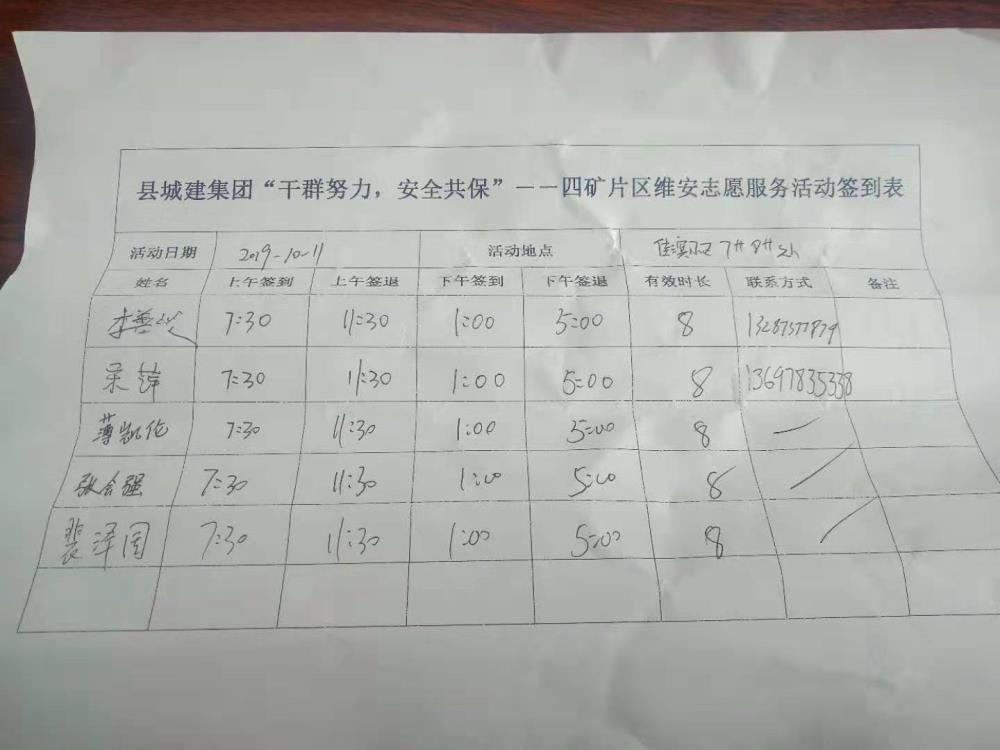 县城建集团“干群努力，安全共保”——四矿片区维安志愿服务活动签到表
活动日期 2019-10-11 活动地点
姓名 上午签到 上午签退 下午签到 下午签退 有效时长 联系方式 备注
李 7:30 11:30 1:00 5:00 8 13287577879
7:30 11:30 1:00 5:00 8 13697835338
薄凯伦 7:30 11:30 1:00 5:00 8 —
张会强 7:30 11:30 1:00 5:00 8 —
裴泽国 7:30 11:30 1:00 5:00 8 —